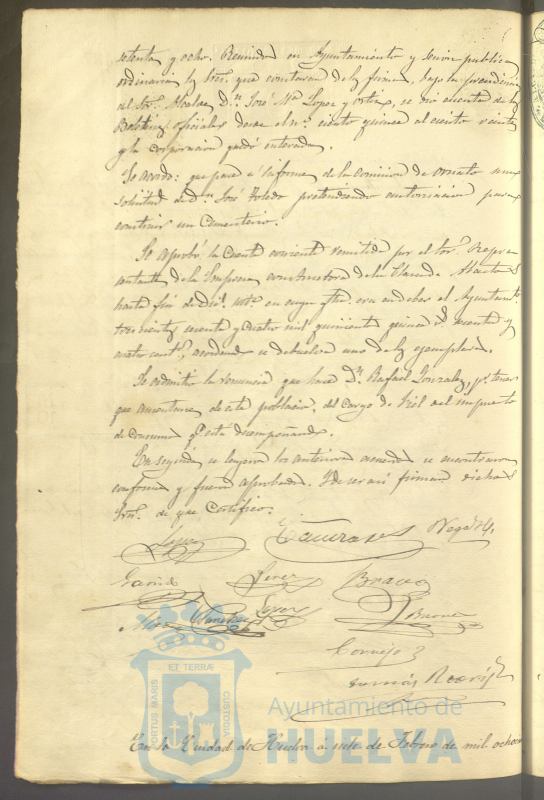 setenta y ocho. Reunidos en Ayuntamiento y sesion publica
ordinaria los Sres. que constaran de las firmas, bajo la presidencia
del Sor. Alcalde Dn. José Ma. Lopez y Ortiz, se dió cuenta de los
Boletines oficiales desde el no. ciento quince al ciento veinte
y la corporacion quedó enterada.
Se acordó: que pase á informe de la Comision de ornato una
solicitud de Dn. José Toledo pretendiendo autorizacion para
construir un Cementerio.
Se aprobó la Cuenta corriente remitida por el Sor. Repre
sentante de la Empresa constructora de la
hasta fin de Dice. en cuya fha. era en deber el Ayuntamto.
trescientos y cuatro mil quinientos quince rs. y
cuatro cents., acordando se devuelva uno de los ejemplares.
Se admitió la renuncia que hace Dn. Rafael Gonzalez, pr. tener
que ausentarse de esta poblacion, del cargo de Fiel del impuesto
de consumos qe. está desempeñando.
En seguida se leyeron los anteriores acuerdos se encontraron
conformes y fueron aprobados. Y de ser así firman dichos
Sres. de que Certifico.
Lopez
Garrido Jerez Bravo
Sanchez Lopez
Cornejo
Tomás
ET TERRÆ
PORTUS MARIS
CUSTODIA
Ayuntamiento de
HUELVA
En la Ciudad de Huelva á siete de Febrero de mil ochoc